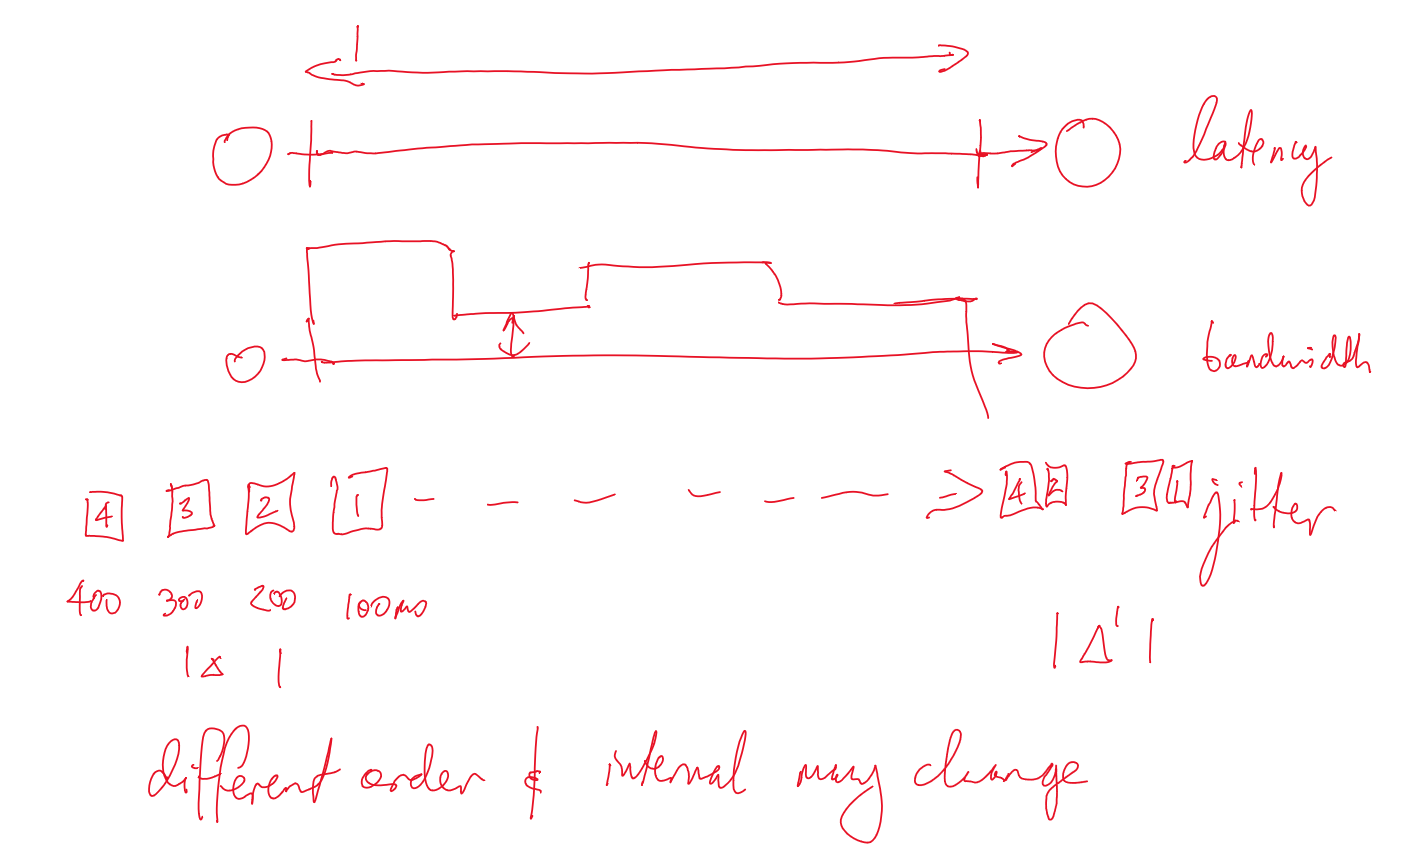 latency
bandwidth
4 3 2 1 4 2 3 1 jitter
400 300 200 100ms
| Δ | | Δ' |
different order & interval may change